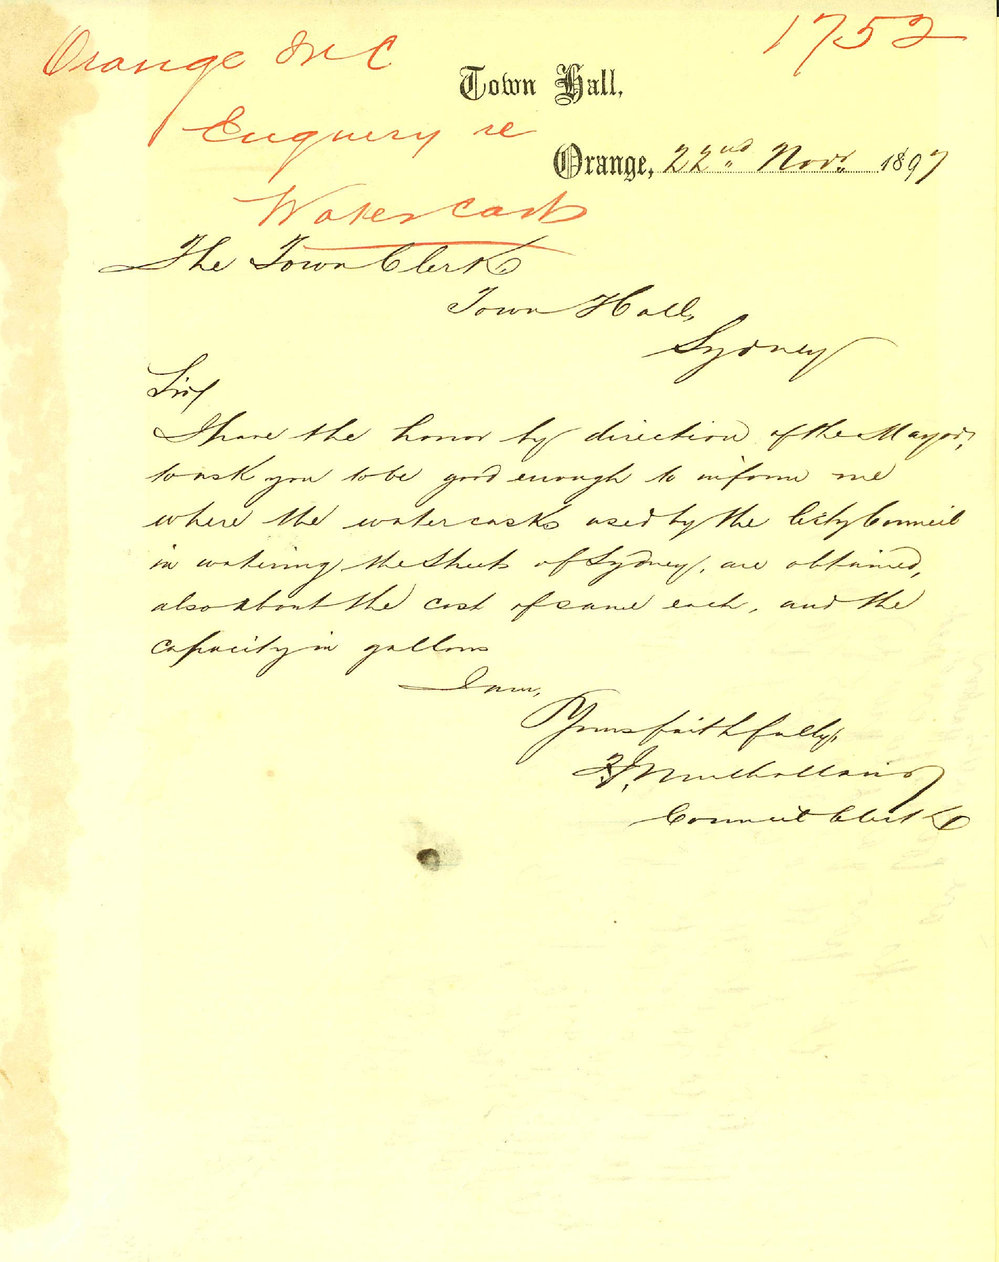 Orange M C
1752
Town Hall,
Enquiry re
Orange, 22nd Nov. 1897
Water casks
The Town Clerk
Town Hall,
Sydney
Sir,
I have the honor by direction of the Mayor,
to ask you to be good enough to inform me
where the water casks used by the City Council
in watering the Streets of Sydney, are obtained,
also about the cost of same each, and the
capacity in gallons
I am,
Yours faithfully,
Mulholland
Council Clerk